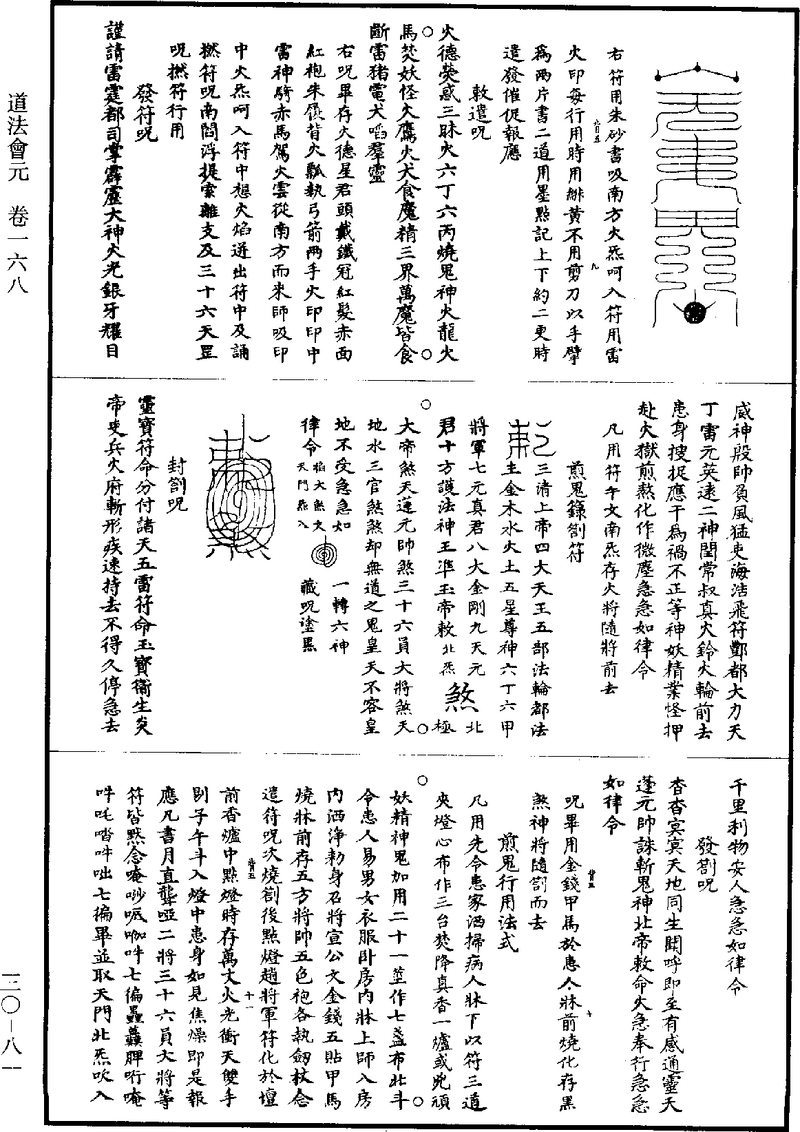 道法會元　卷一六八
右符用朱砂書吸南方火炁呵入符用雷
火印每行用時用緋黃不用剪刀以手擘
為兩片書二道用墨點記上下約二更時
遣發催促報應
敕遣呪
火德熒惑三昧火六丁六丙燒鬼神火龍火
馬焚妖怪火鷹火犬食魔精三界萬魔皆食
斷雷猪電犬啗羣靈
右呪畢存火德星君頭戴鐵冠紅髮赤面
紅袍朱履背火瓢執弓箭兩手火印印中
雷神騎赤馬駕火雲從南方而來師吸印
中火炁呵入符中想火焰迸出符中及誦
撚符呪南閻浮提索離支及三十六天罡
呪撚符行用
發符呪
謹請雷霆都司掌霹靂大神火光銀牙耀目
威神殿帥負風猛吏海浩飛符酆都大力天
丁雷元英遠二神閏常叔真火鈴火輪前去
患身搜捉應干為禍不正等神妖精業怪押
赴火獄煎熬化作微塵急急如律令
凡用符午文南炁存火將隨將前去
煎鬼籙劄符
三清上帝四大天王五部法輪都法
主金木水火土五星尊神六丁六甲
將軍七元真君八大金剛九天元
君十方護法神王準玉帝敕北炁 煞 北極
大帝煞天逵元帥煞三十六員大將煞天
地水三官煞煞却無道之鬼皇天不容皇
地不受急急如
律令 掐大煞文天門炁入
一轉六神
藏呪塗黑
封劄呪
靈寶符命分付諸天五雷符命玉寶衛生炎
帝吏兵火府斬形疾速持去不得久停急去
千里利物安人急急如律令
發劄呪
杳杳冥冥天地同生聞呼即至有感通靈天
蓬元帥誅斬鬼神北帝敕命火急奉行急急
如律令
呪畢用金錢甲馬於患人牀前燒化存黑
煞神將隨劄而去
煎鬼行用法式
凡用先令患家洒掃病人牀下以符三道
夾燈心布作三台焚降真香一爐或兇頑
妖精神鬼加用二十一莖作七盞布北斗
令患人易男女衣服卧房內牀上師入房
內洒淨勑身召將宣公文金錢五貼甲馬
燒牀前存五方將帥五色袍各執劍杖念
遣符呪次燒劄後點燈趙將軍符化於壇
前香爐中點燈時存萬丈火光衝天雙手
剔子午斗入燈中患身如見焦燥即是報
應凡書月直聾啞二將三十六員大將等
符皆默念唵吵㖿㗎吽七徧蟲蠹脾哘唵
吽吒㗳吽咄七徧畢並取天門北炁吹入
三〇－八一